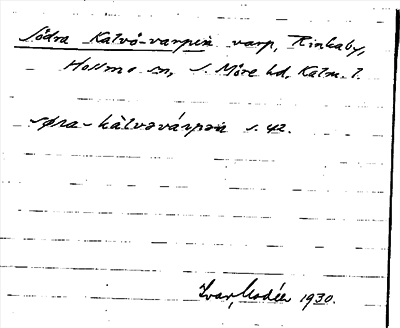 Södra Kalvö-varpen varp, Rinkaby,
Hossmo sn, S. Möre hd, Kalm. l.
søra-kàlvəvárpən s. 42.
Ivar Modéer 1930.